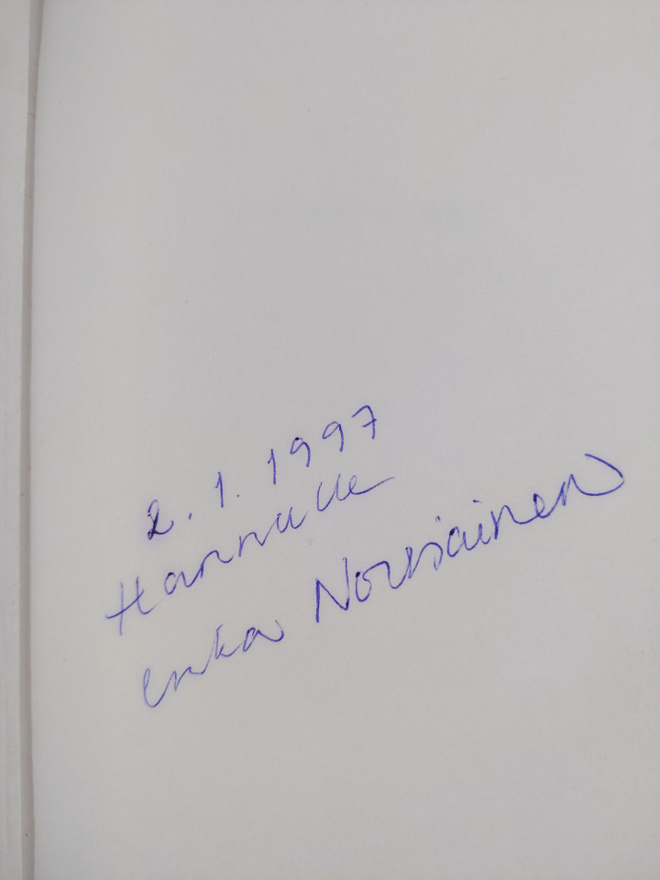 2.1.1997
Hannulle
Nousiainen